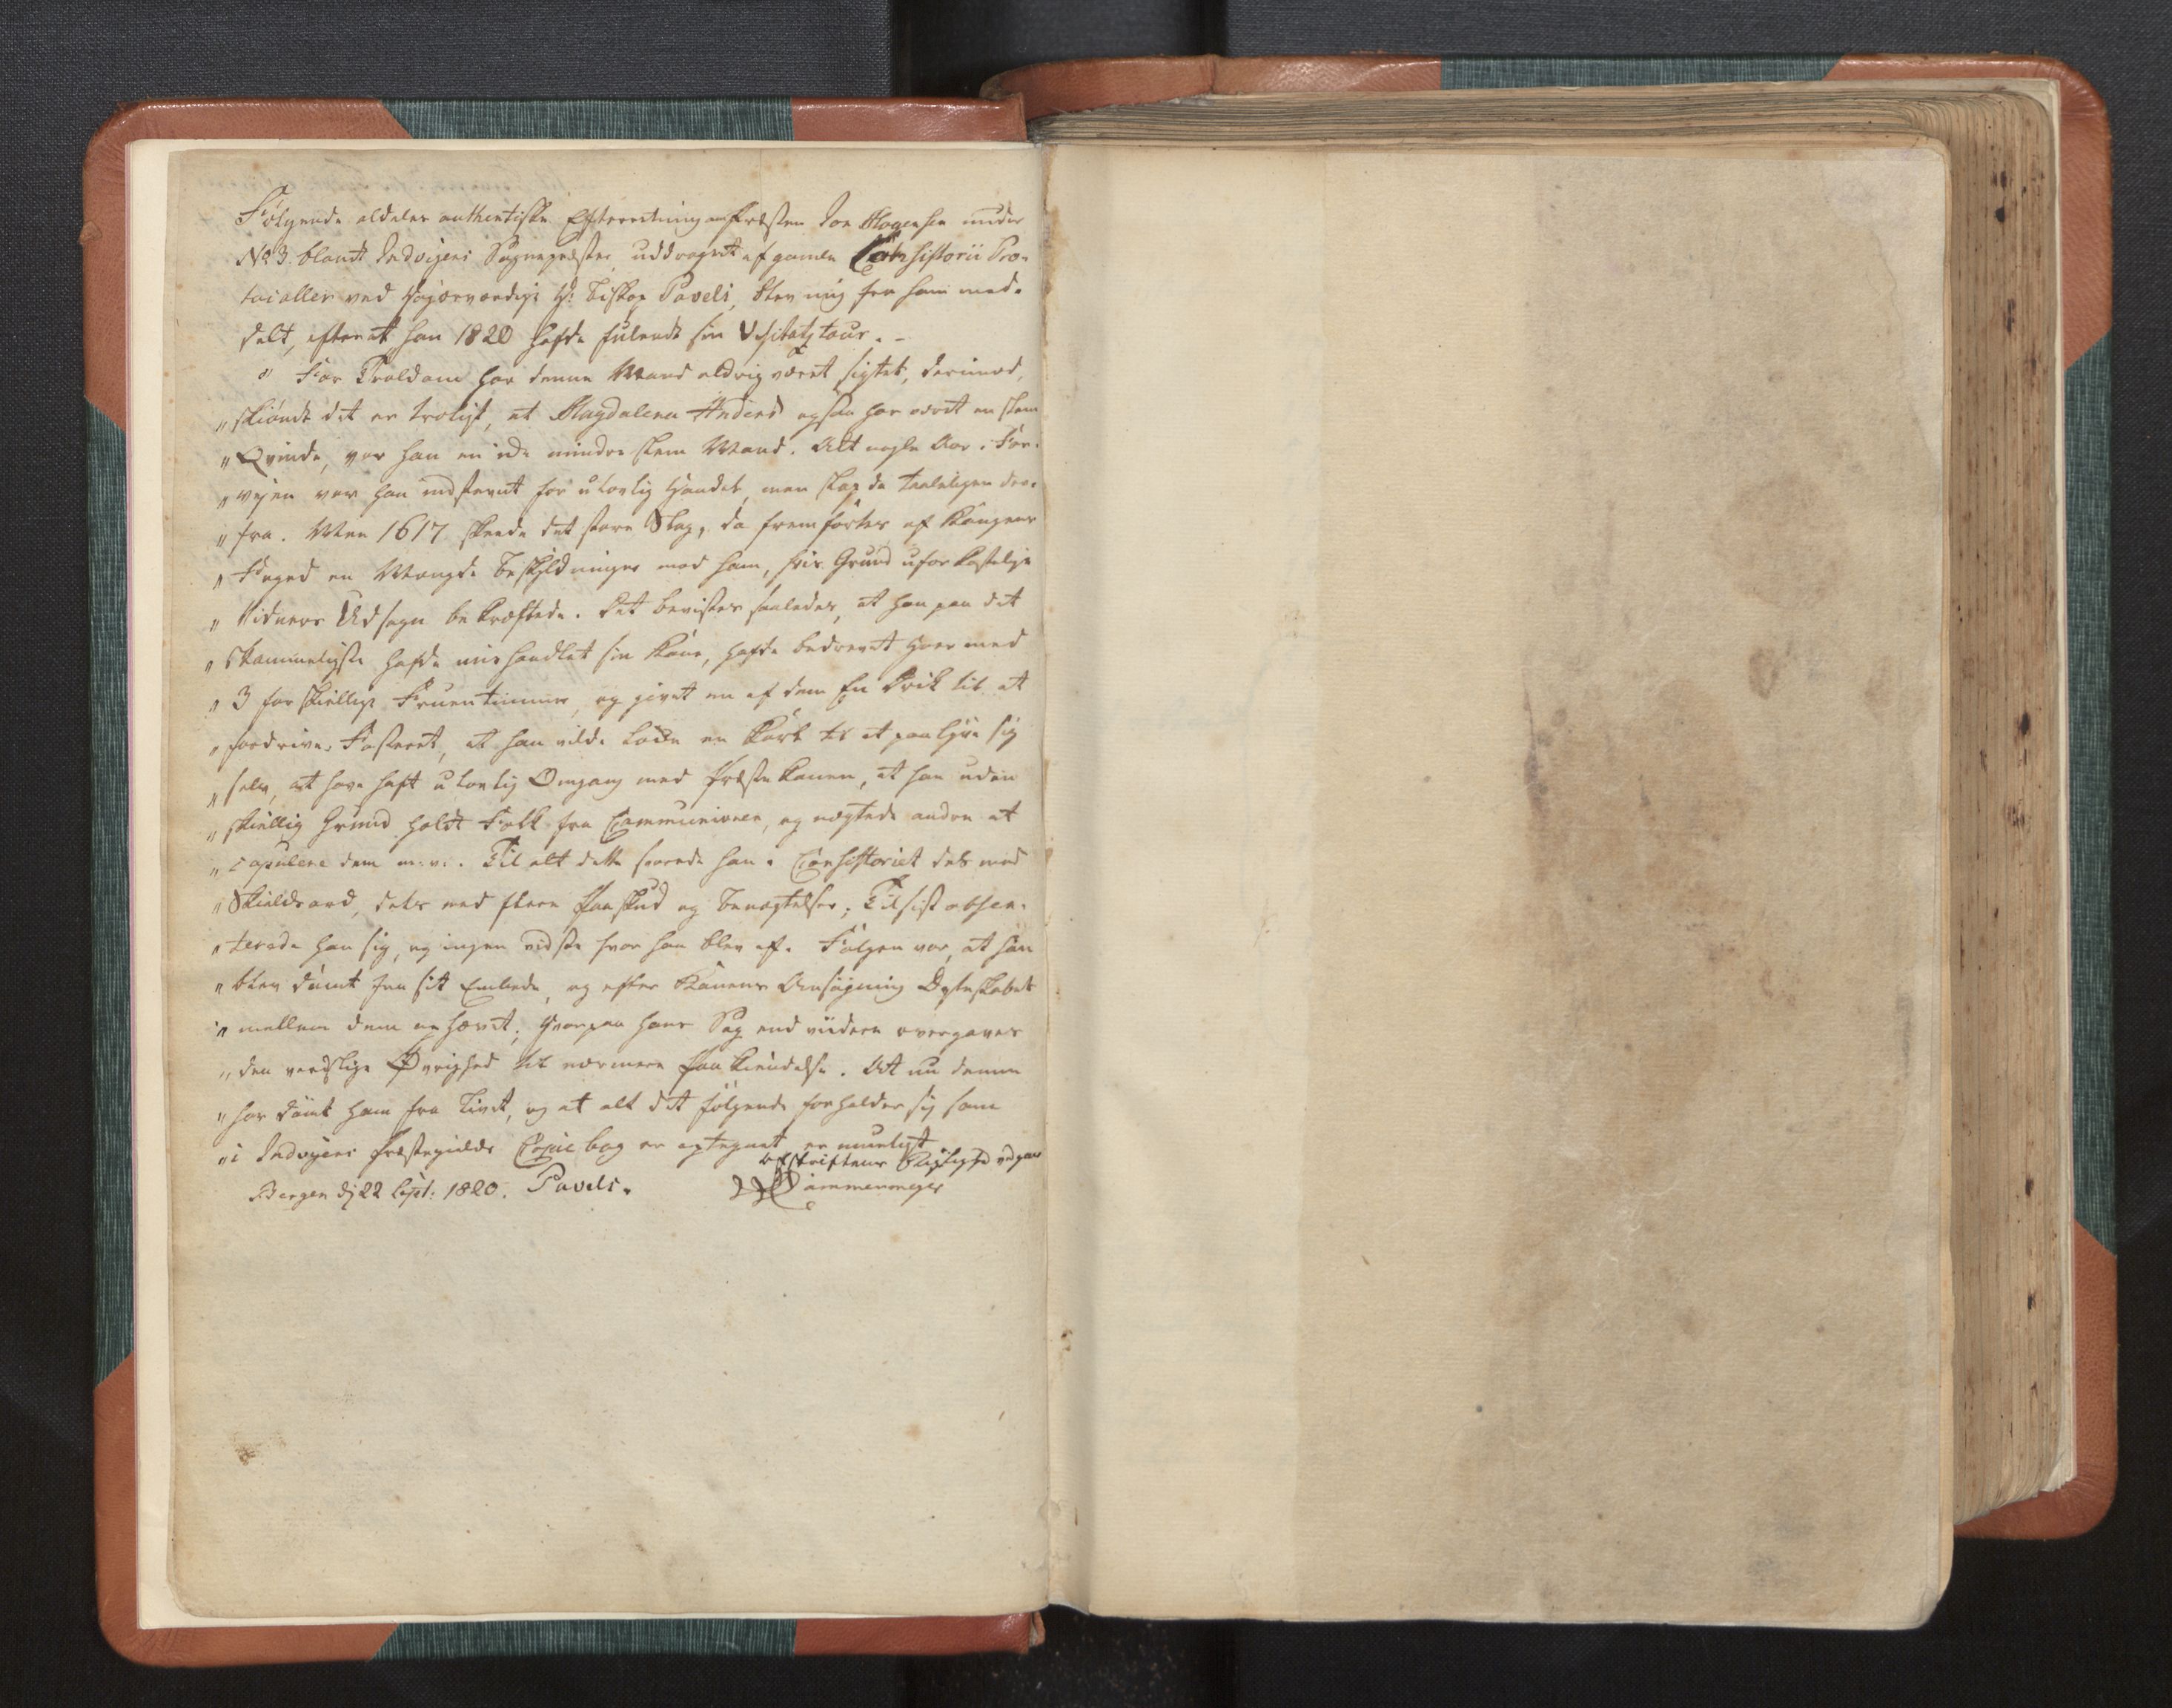 Følgende aldeles authentiske Efterretning om Præsten Jon Mogensen under
No 3 blandt Indvigens Sognepræster, uddraget af gamle Consistorii Pro-
tocoller ved Højærværdige Hr. Biskop Pavels, blev mig fra ham med-
delt, efterat han 1820 hafde fuldendt sin Visitatz tour. -
" For Troldom har denne Mand aldrig været sigtet, derimod,
" skiöndt det er troligt, at Magdalena Anders ogsaa har været en slem
" Qvinde, var han en ikke mindre slem Mand. Alt nogle Aar i For-
" vejen var han indstevnt for ulovlig Handel, men slap da taaleligen der-
" fra. Men 1617 skeede det store Slag, da fremførtes af Kongens
" Foged en Mængde Beskyldninger mod ham, hvis Grund uforkastelige
" Vidners Udsagn bekræftede. Det bevistes saaledes, at han paa det
" skammeligste hafde mishandlet sin Kone, hafde bedrevet Hoer med
" 3 forskiellige Fruentimmer, og givet en af dem En Drik til at
" fordrive Fosteret, at han vilde leie en Karl til at paalyve sig
" selv, at have haft ulovlig Omgang med Præstekonen, at han uden
" skiellig Grund holdt Folk fra Communionen, og nægtede andre at
" copulere dem m: v: . Til alt dette svarede han i Consistoriet dels med
" Skieldsord, dels med flere Paaskud og Benægtelser; Tilsist absen-
" terede han sig, og ingen vidste hvor han blev af. Følgen var, at han
" blev dømt fra sit Embede, og efter Konens Ansøgning Egteskabet
" mellem dem ophævet; Hvorpaa hans Sag end viidere overgaves
" den verdslige Øvrighed til nærmere Paakiendelse. At nu denne
" har dömt ham fra Livet, og at alt det følgende forholder sig som
" i Indvigens Præstegields Copie bog er optegnet er mueligt
Afskriftens Rigtighed vedgaaes
Bergen dj 22 Sept: 1820. Pavels.
Dammermeyer